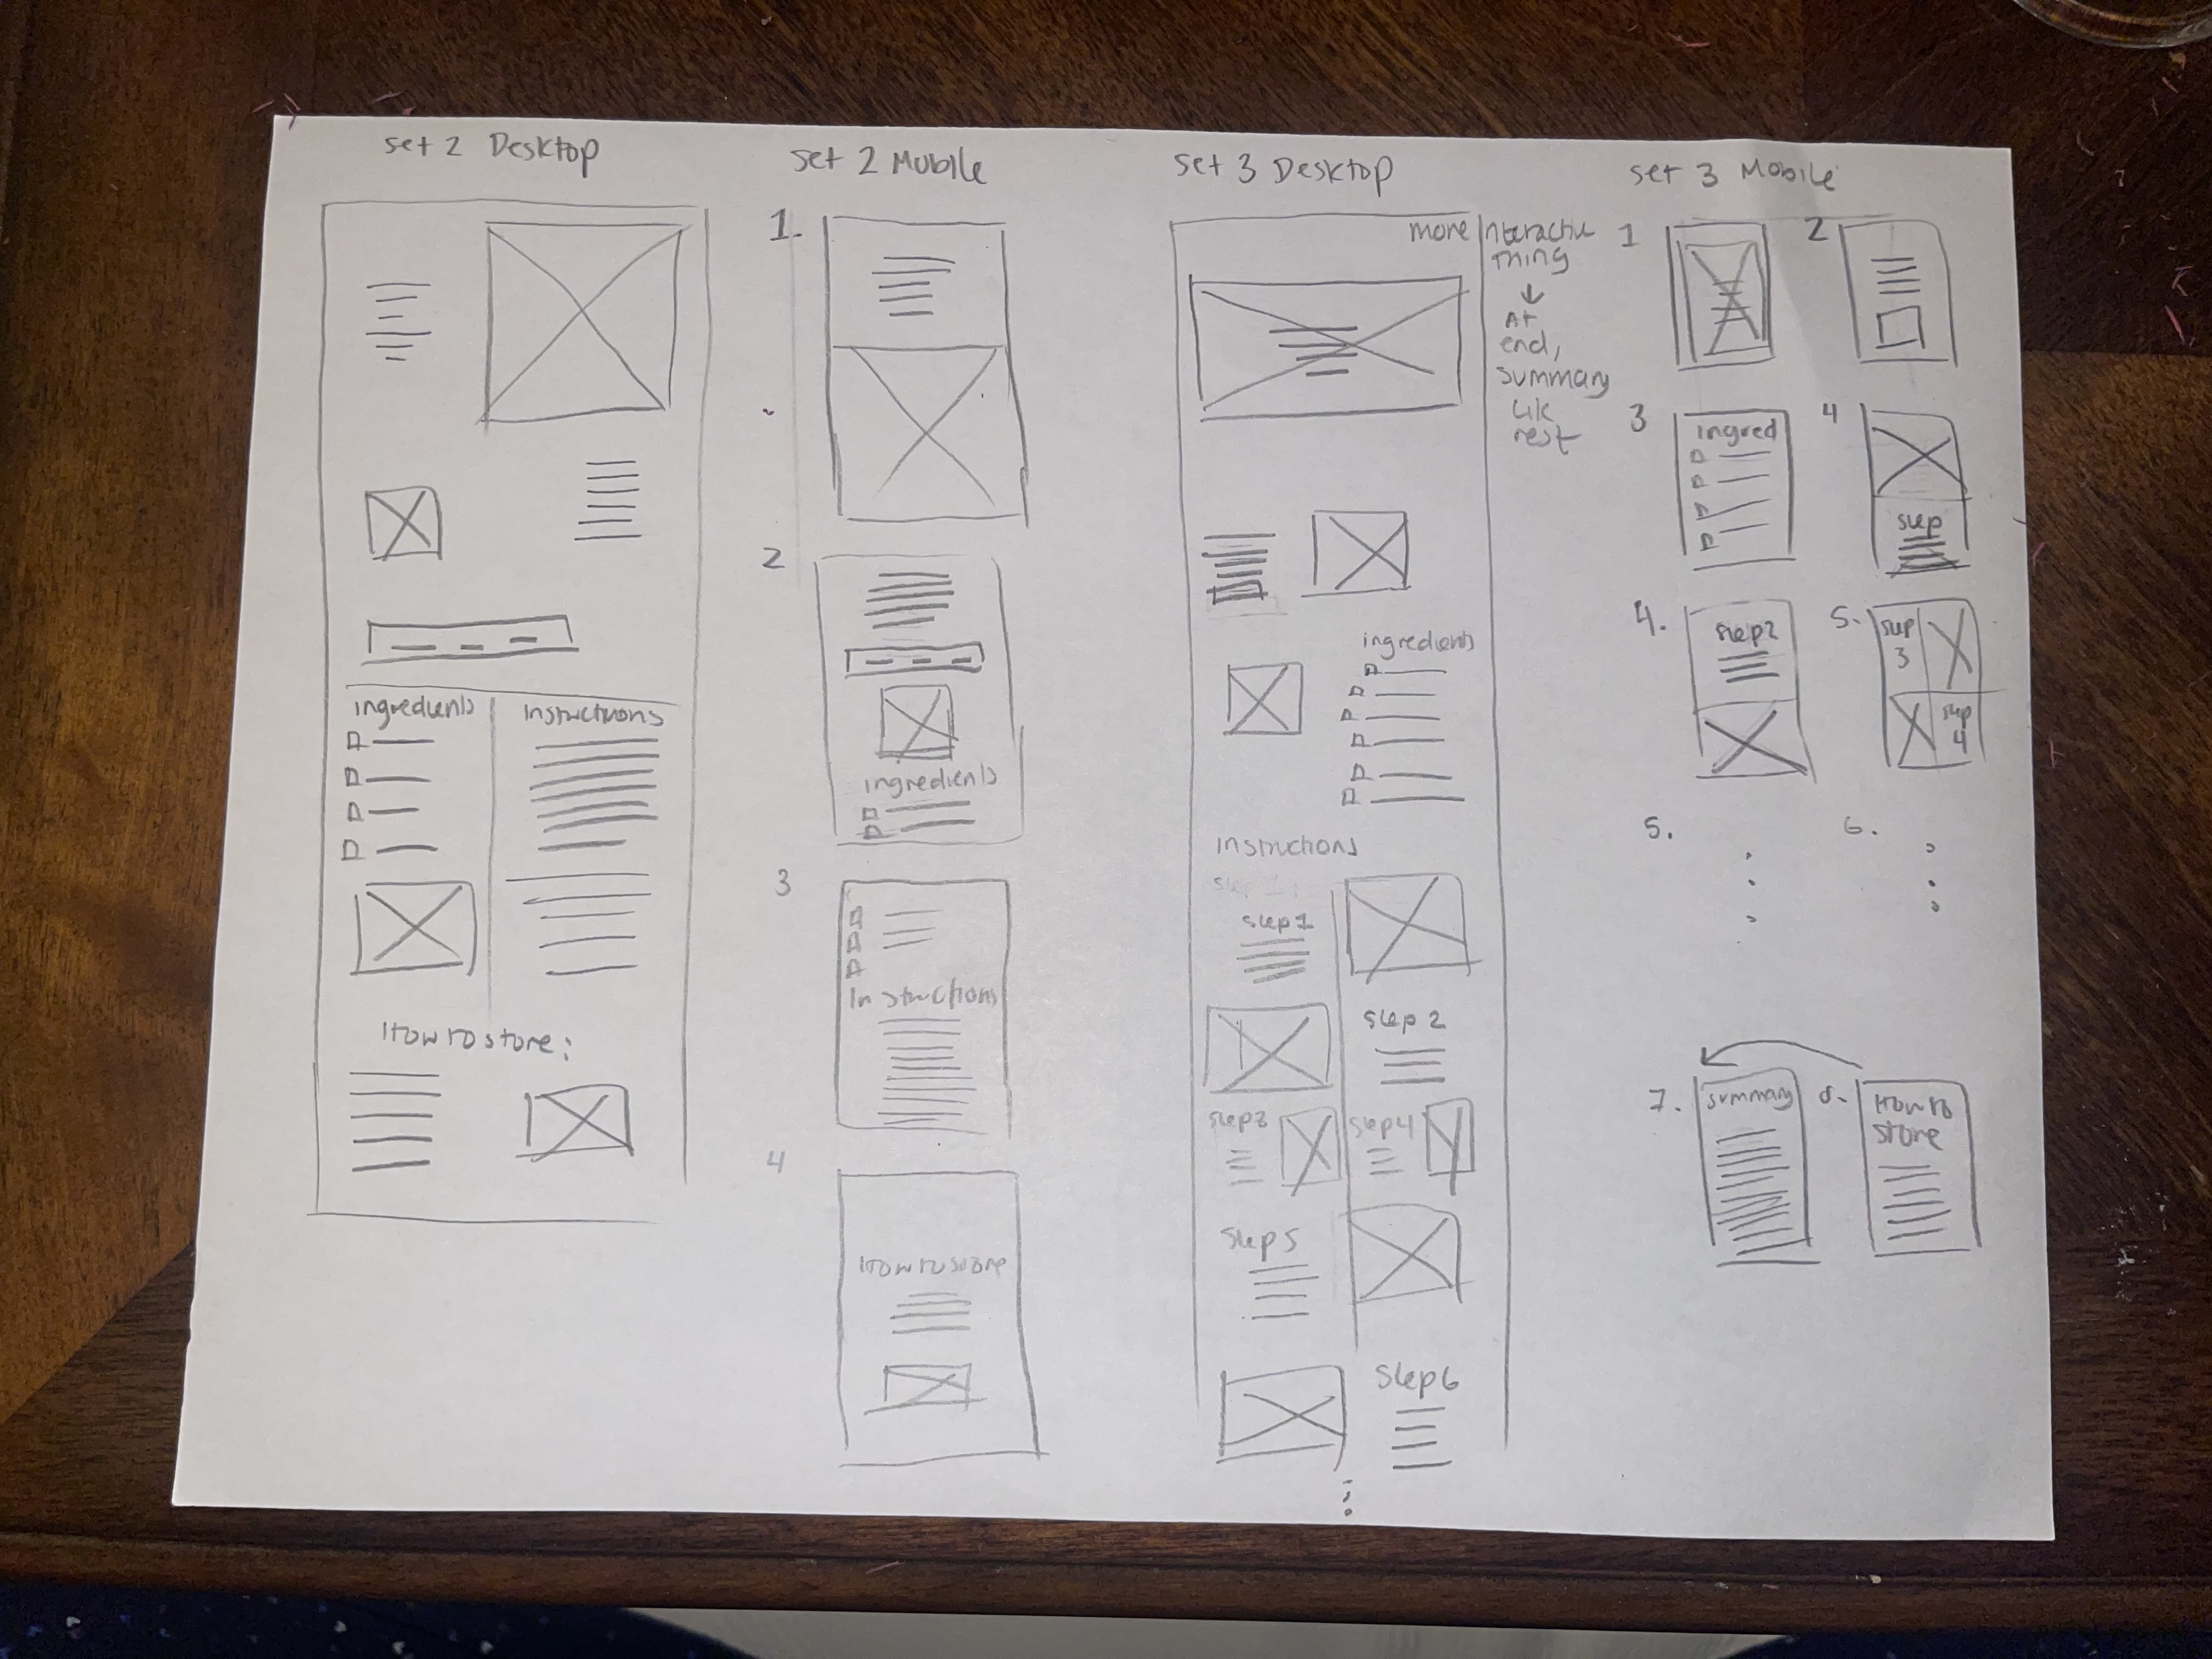 set 2 Desktop
ingredients
Instructions
How to store:
set 2 Mobile
1.
2
ingredients
3
Instructions
4
How to store
set 3 Desktop
more Interactive
thing
At
end,
summary
lik
rest
ingredients
Instructions
step 1
step 2
step 3
step 4
step 5
step 6
set 3 Mobile
1
2
3
ingred
4
step
4.
step 2
5.
step
3
step
4
5.
6.
7.
summary
8.
How to
store